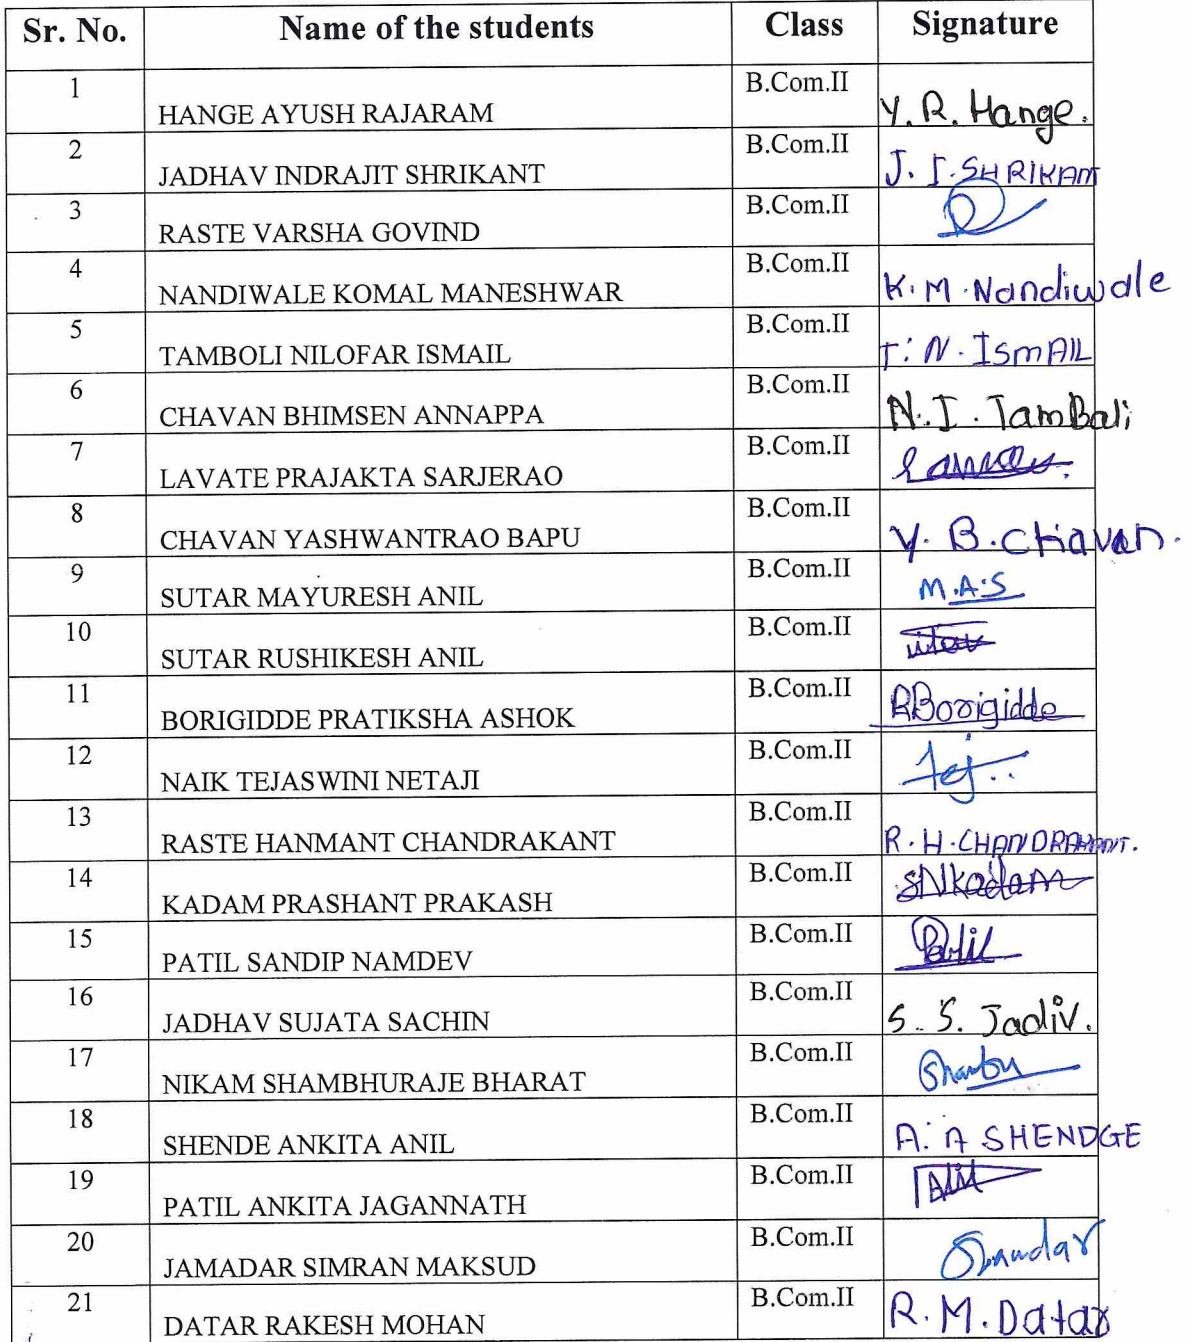 Sr. No. Name of the students Class Signature
1 HANGE AYUSH RAJARAM B.Com.II Y. R. Hange.
2 JADHAV INDRAJIT SHRIKANT B.Com.II J. I. SHRIKANT
3 RASTE VARSHA GOVIND B.Com.II
4 NANDIWALE KOMAL MANESHWAR B.Com.II K. M. Nandiwale
5 TAMBOLI NILOFAR ISMAIL B.Com.II T. N. ISmAIL
6 CHAVAN BHIMSEN ANNAPPA B.Com.II N. I. TamBali
7 LAVATE PRAJAKTA SARJERAO B.Com.II
8 CHAVAN YASHWANTRAO BAPU B.Com.II Y. B. Chavan.
9 SUTAR MAYURESH ANIL B.Com.II M.A.S
10 SUTAR RUSHIKESH ANIL B.Com.II
11 BORIGIDDE PRATIKSHA ASHOK B.Com.II PBorigidde
12 NAIK TEJASWINI NETAJI B.Com.II Tej..
13 RASTE HANMANT CHANDRAKANT B.Com.II R. H. CHANDRAKANT.
14 KADAM PRASHANT PRAKASH B.Com.II SNKadam
15 PATIL SANDIP NAMDEV B.Com.II Patil
16 JADHAV SUJATA SACHIN B.Com.II S. S. Jadiv.
17 NIKAM SHAMBHURAJE BHARAT B.Com.II Shambu
18 SHENDE ANKITA ANIL B.Com.II A. A SHENDGE
19 PATIL ANKITA JAGANNATH B.Com.II
20 JAMADAR SIMRAN MAKSUD B.Com.II
21 DATAR RAKESH MOHAN B.Com.II R. M. Datar